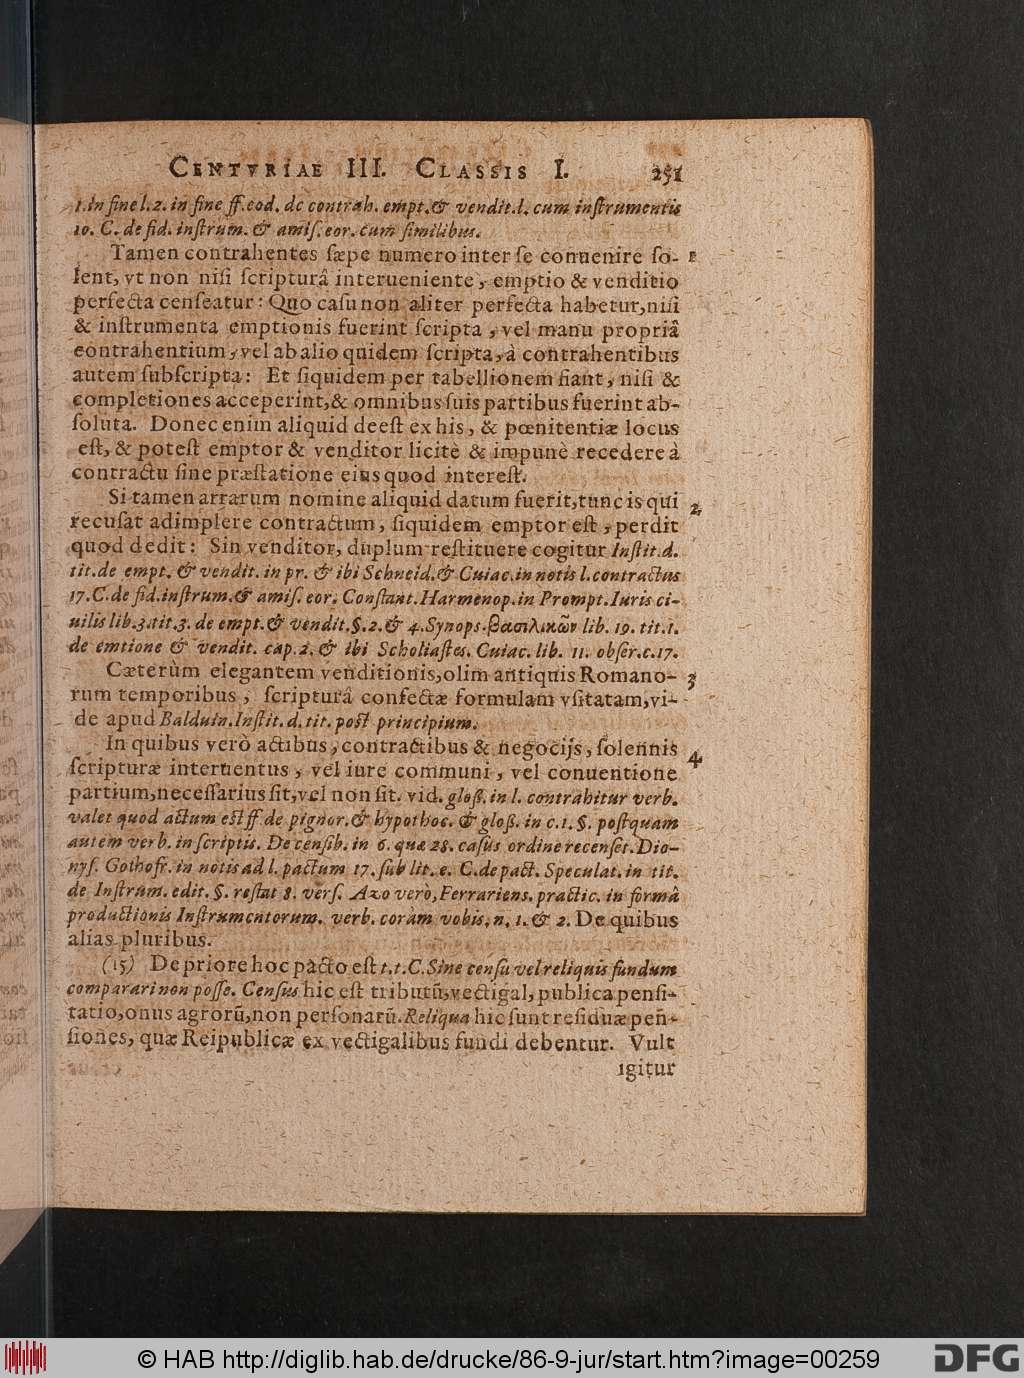 CENTVRIAE III. CLASSIS I. 251
1. in fine l. 2. in fine ff. eod. de contrah. empt. & vendit. l. cum inſtrumentis
10. C. de fid. inſtrum. & amiſ. eor. cum ſimilibus.
Tamen contrahentes ſæpe numero inter ſe conuenire ſo- 1
lent, vt non niſi ſcripturâ interueniente, emptio & venditio
perfecta cenſeatur: Quo caſu non aliter perfecta habetur, niſi
& inſtrumenta emptionis fuerint ſcripta, vel manu propriâ
contrahentium, vel ab alio quidem ſcripta, à contrahentibus
autem ſubſcripta: Et ſiquidem per tabellionem fiant, niſi &
completiones acceperint, & omnibus ſuis partibus fuerint ab-
ſoluta. Donec enim aliquid deeſt ex his, & pœnitentiæ locus
eſt, & poteſt emptor & venditor licitè & impunè recedere à
contractu ſine præſtatione eius quod intereſt.
Si tamen arrarum nomine aliquid datum fuerit, tunc is qui 2
recuſat adimplere contractum, ſiquidem emptor eſt, perdit
quod dedit: Sin venditor, duplum reſtituere cogitur Inſtit. d.
tit. de empt. & vendit. in pr. & ibi Schneid. & Cuiac. in notis l. contractus
17. C. de fid. inſtrum. & amiſ. eor. Conſtant. Harmenop. in Prompt. Iuris ci-
uilis lib. 3. tit. 3. de empt. & vendit. §. 2. & 4. Synops. βασιλικῶν lib. 19. tit. 1.
de emtione & vendit. cap. 2. & ibi Scholiaſtes. Cuiac. lib. 11. obſer. c. 17.
Cæterùm elegantem venditionis, olim antiquis Romano- 3
rum temporibus, ſcripturâ confectæ formulam vſitatam, vi-
de apud Balduin. Inſtit. d. tit. poſt principium.
In quibus verò actibus, contractibus & negocijs, ſolennis 4
ſcripturæ interuentus, vel iure communi, vel conuentione
partium, neceſſarius ſit, vel non ſit. vid. gloſſ. in l. contrahitur verb.
valet quod actum eſt ff. de pignor. & hypothec. & gloſſ. in c. 1. §. poſtquam
autem verb. in ſcriptis. De cenſib. in 6. quæ 28. caſus ordine recenſet. Dio-
nyſ. Gothofr. in notis ad l. pactum 17. ſub lit. e. C. de pact. Speculat. in tit.
de Inſtrum. edit. §. reſtat 8. verſ. Axo verò, Ferrariens. practic. in formâ
productionis Inſtrumentorum. verb. coràm vobis, n. 1. & 2. De quibus
alias pluribus.
(15) De priore hoc pacto eſt t. t. C. Sine cenſu vel reliquis fundum
comparari non poſſe. Cenſus hic eſt tributū, vectigal, publica penſi-
tatio, onus agrorū, non perſonarū. Reliqua hic ſunt reſiduæ pen-
ſiones, quæ Reipublicæ ex vectigalibus fundi debentur. Vult
igitur
© HAB http://diglib.hab.de/drucke/86-9-jur/start.htm?image=00259
DFG